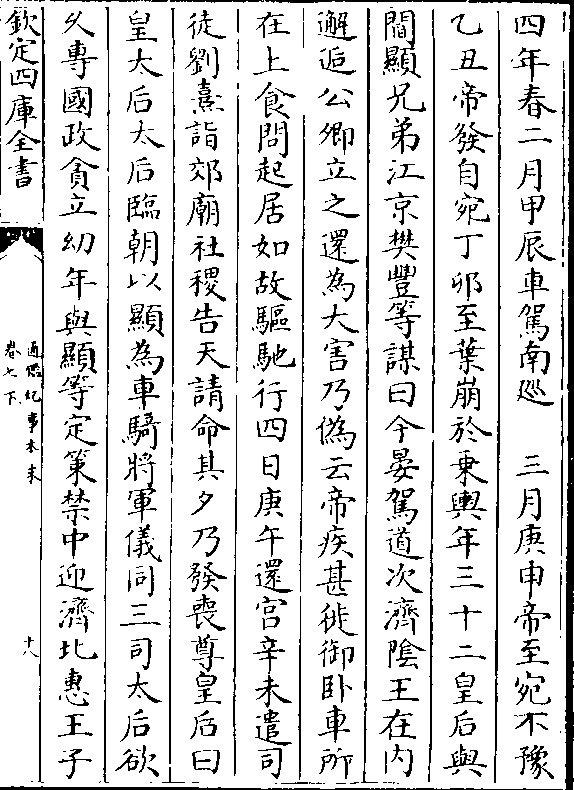 四年春二月甲辰車駕南廵　三月庚申帝至宛不豫
乙丑帝發自宛丁卯至葉崩於乗輿年三十二皇后與
閻顯兄弟江京樊豐等謀曰今晏駕道次濟隂王在内
邂逅公卿立之還為大害乃偽云帝疾甚徙御卧車所
在上食問起居如故驅馳行四日庚午還宫辛未遣司
徒劉熹詣郊廟社稷告天請命其夕乃發喪尊皇后曰
皇太后太后臨朝以顯為車騎將軍儀同三司太后欲
乆專國政貪立幼年與顯等定策禁中迎濟北惠王子
欽定四庫全書
通鑑紀事本末
卷七下
十八